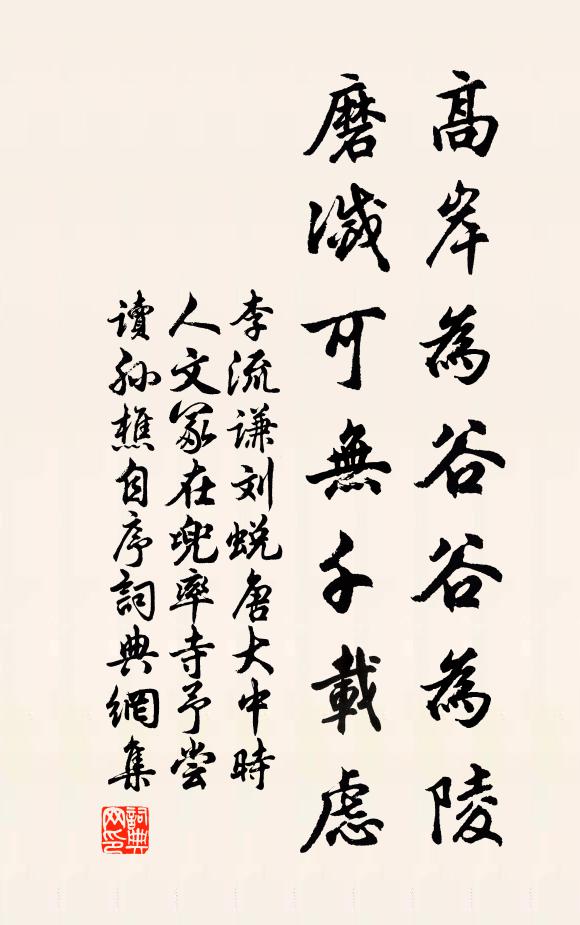 高岸為谷谷為陵
磨滅可無千載慮
李流謙刘蜕唐大中時
人文冢在兜率寺予尝
讀孙樵自序詞典網集
詞典
网印